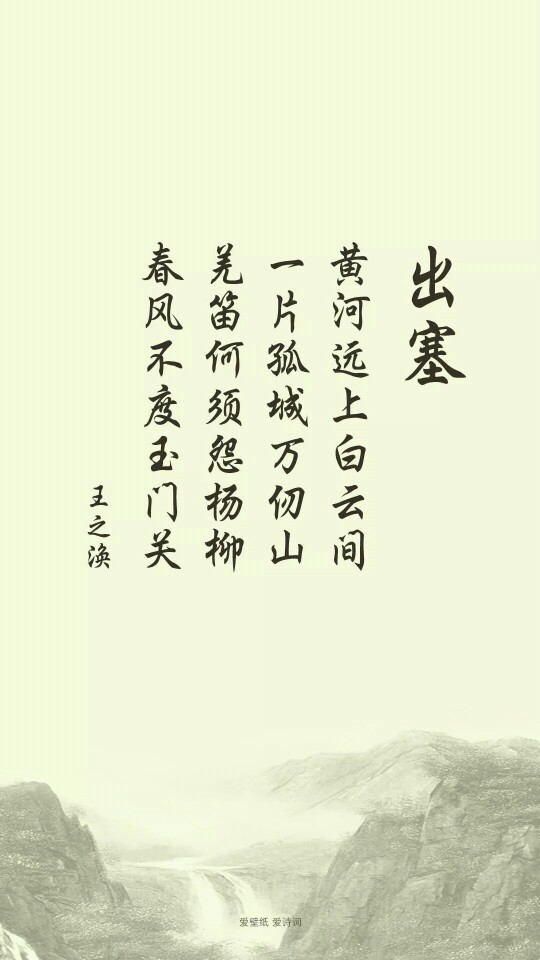 出塞
黄河远上白云间
一片孤城万仞山
羌笛何须怨杨柳
春风不度玉门关
王之涣
爱壁纸 爱诗词